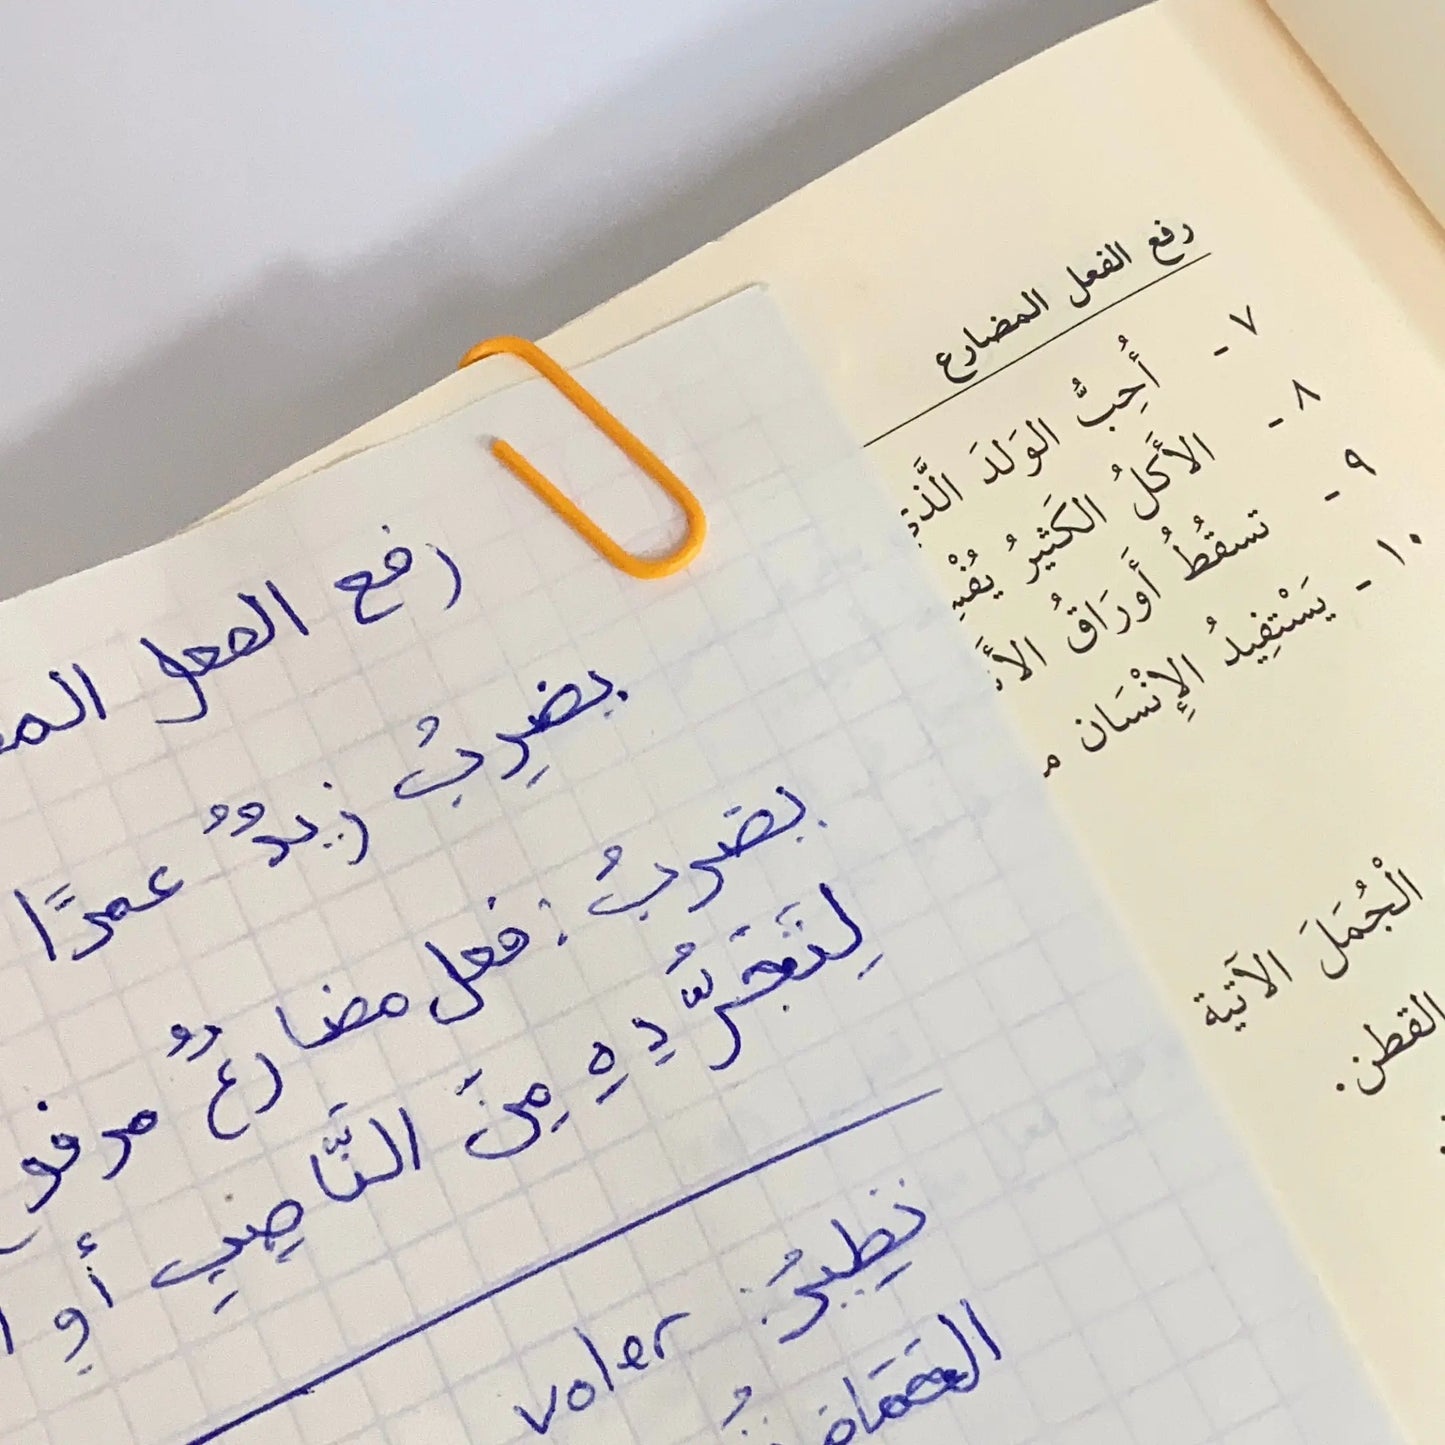 رفع الفعل المضارع
٧ - أُحِبُّ الوَلدَ
٨ - الأَكلُ الكَثيرُ
٩ - تسقُطُ أَورَاقُ
١٠ - يَسْتفِيدُ الإِنْسَان
الْجُمَلَ الآتية
القطن.
رفع الفعل
يضرِبُ زيدٌ عمرًا
يضربُ : فعل مضارعٌ
لِتَجَرُّدِهِ مِنَ النَّاصِبِ أو
تطِيرُ: voler